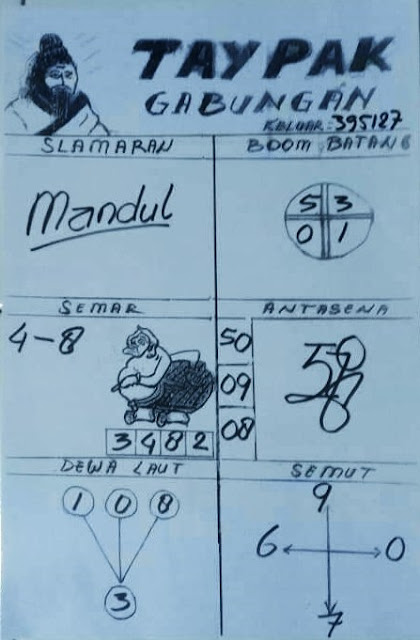 TAYPAK
GABUNGAN
KELUAR: 395127
SLAMARAN
Mandul
BOOM BATANG
5 3
0 1
SEMAR
4-8
3 4 8 2
50
09
08
ANTASENA
58
DEWA LAUT
1 0 8
3
SEMUT
9
6 0
7